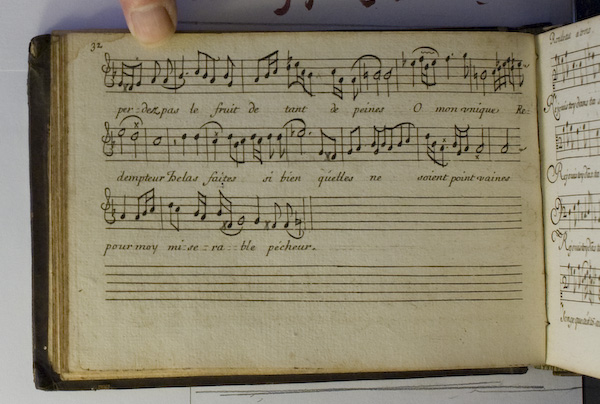 32
per-dez pas le fruit de tant de peines O mon vnique Re-
dempteur Helas faites si bien qu'elles ne soient point vaines
pour moy mi-se-ra-ble pécheur.